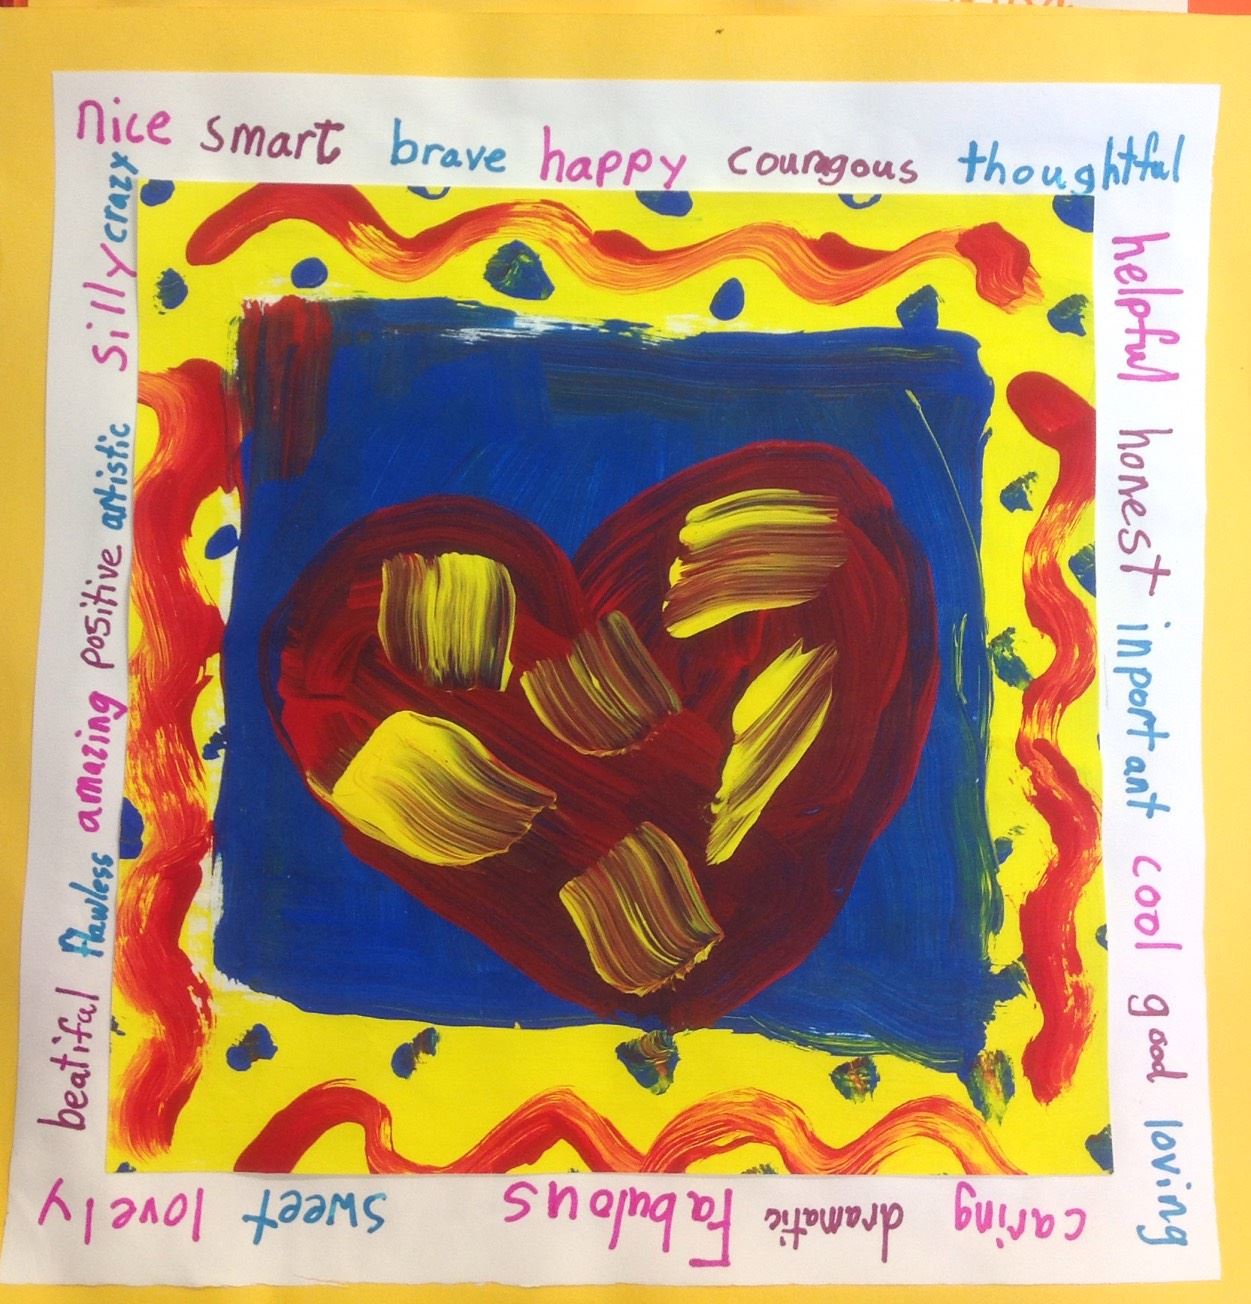 nice smart brave happy couragous thoughtful
helpful honest inportant cool good loving
caring dramatic Fabulous sweet lovely
beatiful flawless amazing positive artistic silly crazy